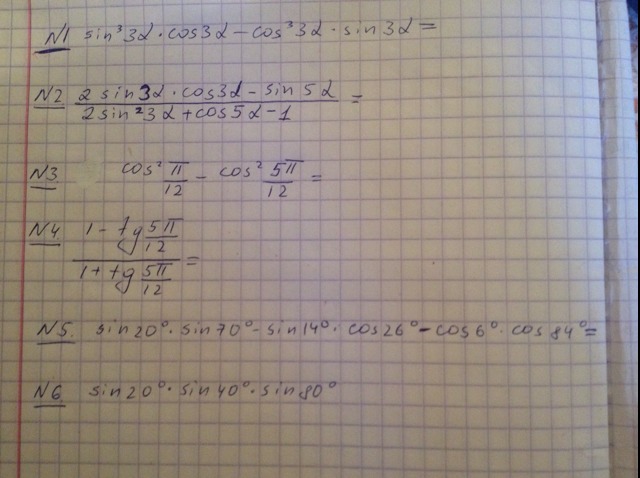 N1 sin³3α·cos3α-cos³3α·sin3α=
N2 (2sin3α·cos3α-sin5α)/(2sin²3α+cos5α-1)=
N3 cos²π/12-cos²5π/12=
N4 (1-tg5π/12)/(1+tg5π/12)=
N5. sin20°·sin70°-sin14°·cos26°-cos6°·cos84°=
N6. sin20°·sin40°·sin80°